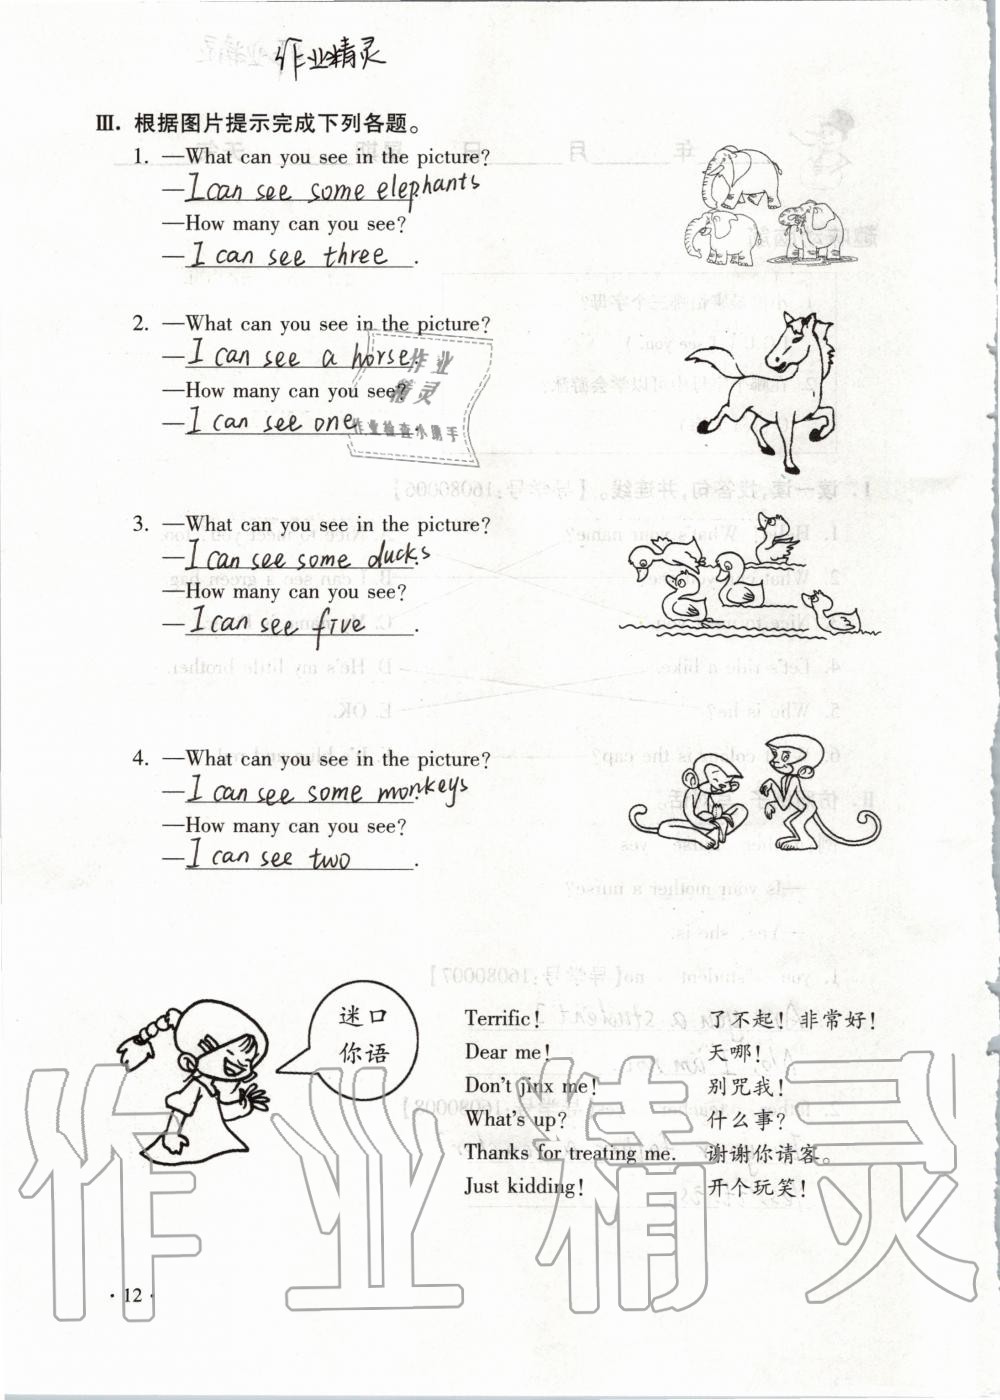 作业精灵
Ⅲ. 根据图片提示完成下列各题。
1. —What can you see in the picture?
—I can see some elephants
—How many can you see?
—I can see three.
2. —What can you see in the picture?
—I can see a horse.
—How many can you see?
—I can see one.
作业
精灵
作业检查小助手
3. —What can you see in the picture?
—I can see some ducks
—How many can you see?
—I can see five.
4. —What can you see in the picture?
—I can see some monkeys
—How many can you see?
—I can see two.
迷口
你语
Terrific! 了不起！非常好！
Dear me! 天哪！
Don't jinx me! 别咒我！
What's up? 什么事？
Thanks for treating me. 谢谢你请客。
Just kidding! 开个玩笑！
作业精灵
· 12 ·